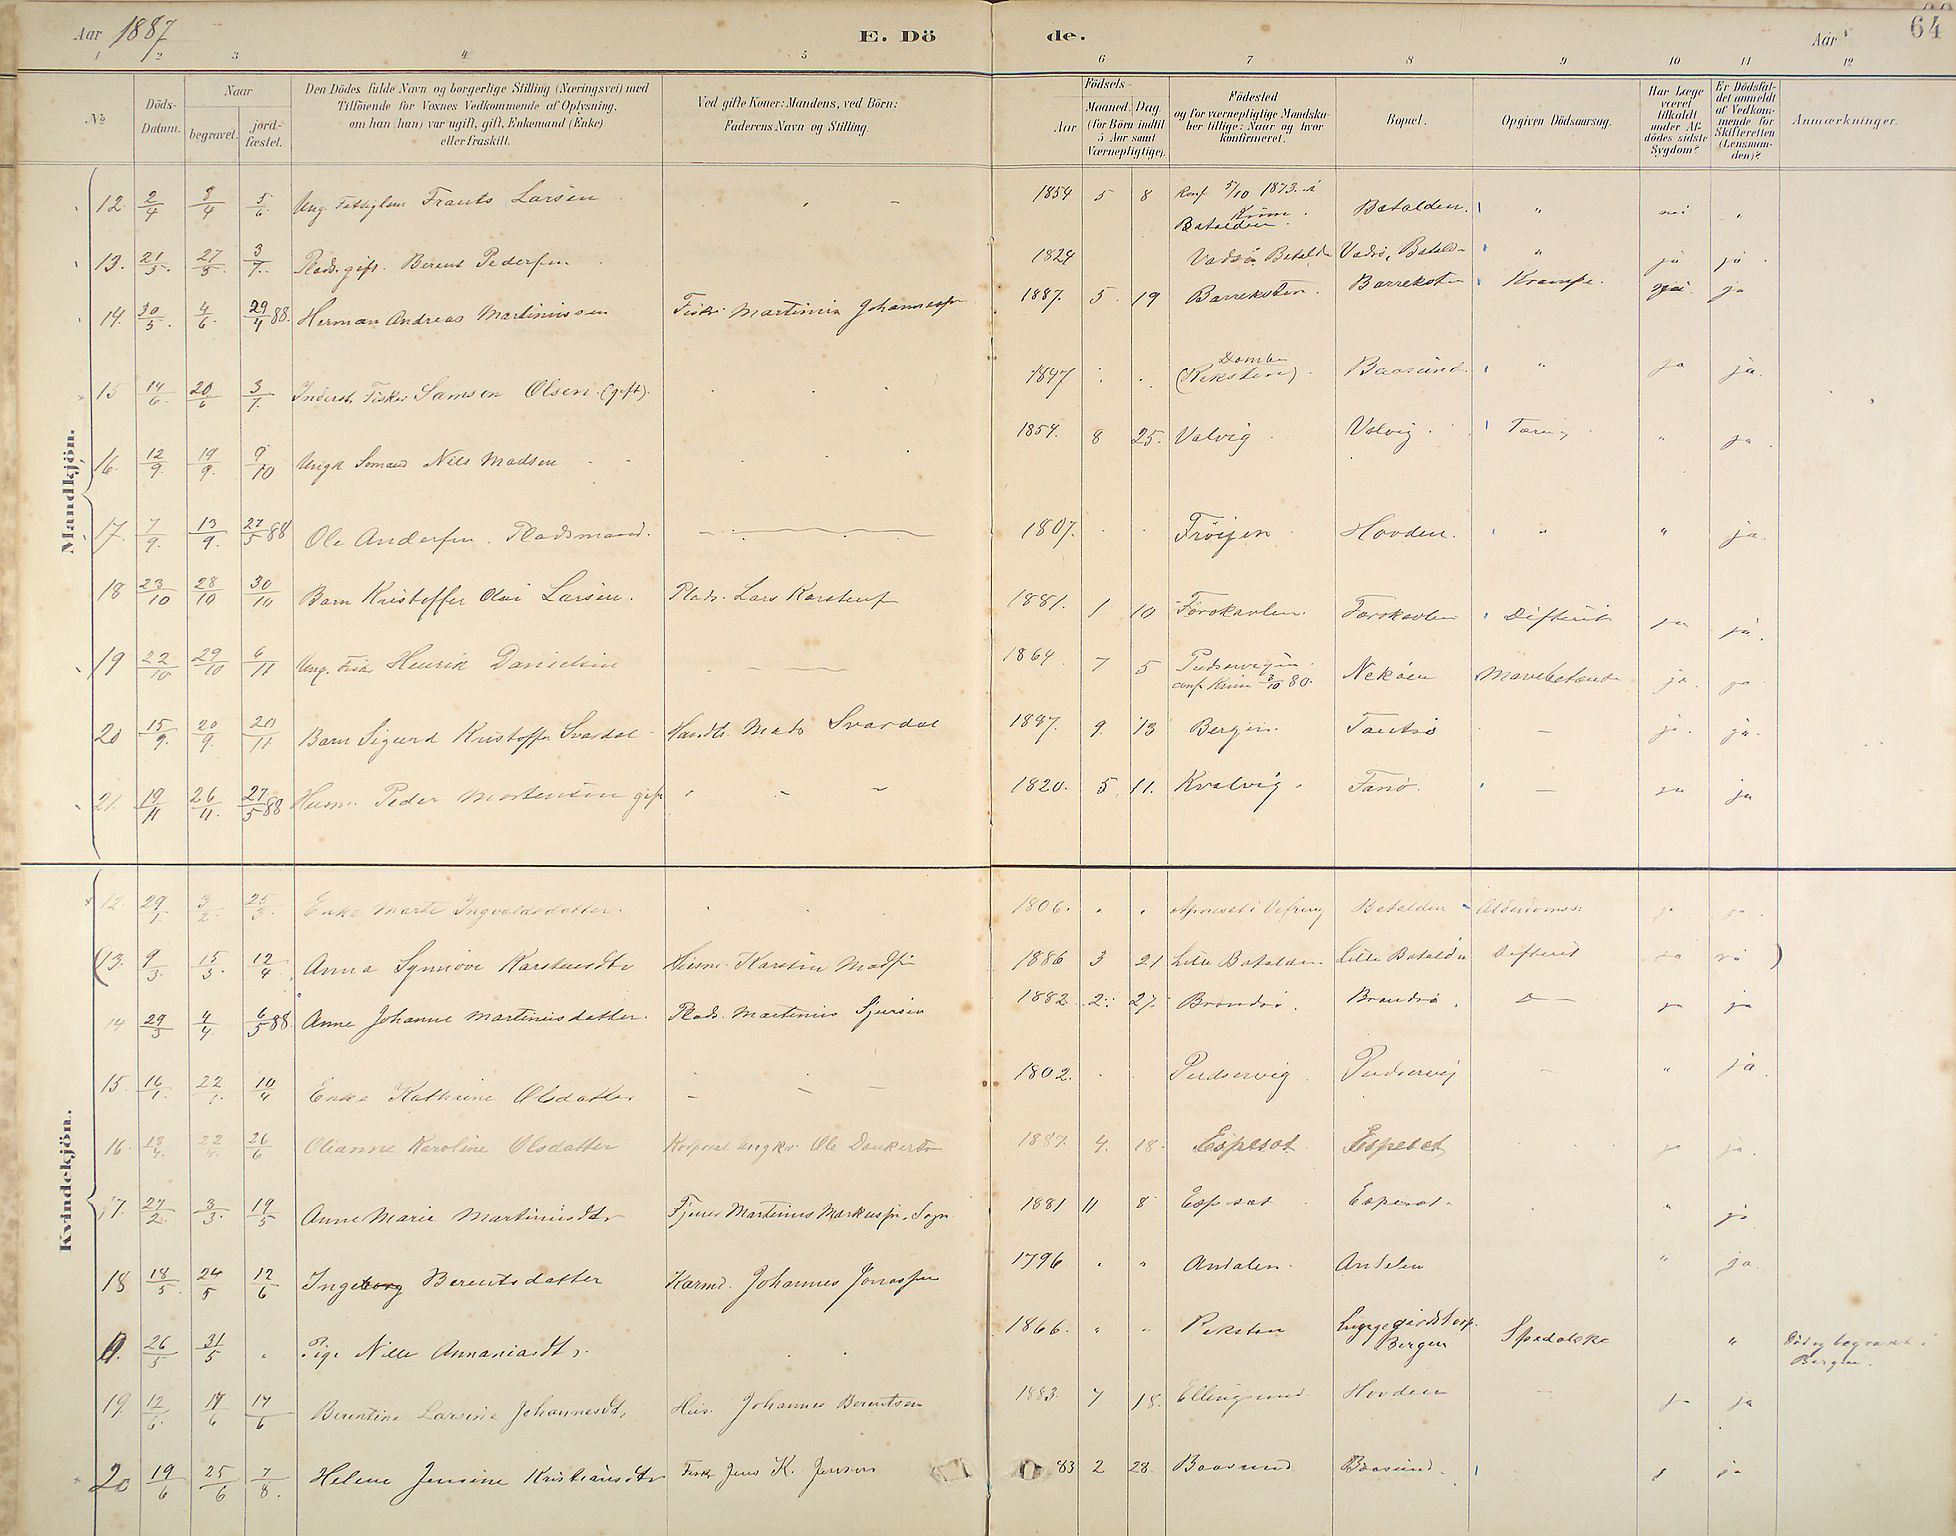 Aar 1887
E. Döde.
Aar
64
1 2 3 4 5 6 7 8 9 10 11 12
№
Döds-Datum.
Naar
begravet.
jord-fæstet.
Den Dödes fulde Navn og borgerlige Stilling (Næringsvei) med
Tilföiende for Voxnes Vedkommende af Oplysning,
om han (hun) var ugift, gift, Enkemand (Enke)
eller fraskilt.
Ved gifte Koner: Mandens, ved Börn:
Faderens Navn og Stilling.
Födsels-
Aar
Maaned. Dag.
(for Börn indtil
5 Aar samt
Værnepligtige).
Födested
og for værnepligtige Mandska-
ber tillige: Naar og hvor
konfirmeret.
Bopæl.
Opgiven Dödsaarsag.
Har Læge
været
tilkaldt
under Af-
dödes sidste
Sygdom?
Er Dödsfal-
det anmeldt
af Vedkom-
mende for
Skifteretten
(Lensman-
den)?
Anmærkninger.
Mandkjön.
12. 2/4 8/4 5/6 Ung. Frants Larsen 1854 5 8 Konf 5/10 1873 i Kinn. Batalden. Batalden. " nei "
13. 21/5. 27/5. 3/7. Plads. gift. Berent Pedersen 1824 Vadsö Batald Vadsö, Batald " ja ja
14. 30/5. 4/6. 29/4 88. Herman Andreas Martinussen Fisker Martinus Johannessen 1887. 5. 19 Barreksten. Barreksten Krampe. ja
15 14/6 20/6 3/7. Inderst, Fisker Samson Olsen (gift). 1847 Domba (Reksten). Baasund. " ja ja.
16. 12/9. 19/9. 9/10 Ungk Sömand Nils Madsen 1854. 8 25. Valvig Valvig. " ja
17. 7/9. 13/9. 27/5 88 Ole Andersen. Pladsmand. 1807. Fröigen Hovden. " " ja.
18 23/10 28/10 30/10 Barn Kristoffer Olai Larsen. Plads. Lars Karstens 1881. 1 10 Difterit ja ja.
19 22/10 29/10 6/11 Ung. Fisk. Henrik Danielsen 1864 7 5 Pudservigen. conf. Kinn 3/10 80. Nekøen Mavebetænd ja. ja
20 15/9. 20/9. 20/11 Barn Sigurd Kristoffer Svardal Handl. Mads Svardal 1887. 9. 13 Bergen. — ja. ja.
21. 19/11 26/11. 27/5 88 Husm. Peder Mortensen gift 1820. 5. 11. Kvalvig. Fanö. — ja ja
Kvindekjön.
12. 29/1 3/2. 25/3. Enke Marte Ingvaldsdatter. 1806. " " Batalden Alderdomss. ja ja.
(13. 9/3. 15/3. 12/4 Anna Synnöve Karstensdtr Husm. Karsten Mads 1886 3 21 Lille Batalden. Lille Batalden Difterit )
14 29/3 4/4. 6/5 88. Anne Johanne Martinusdatter. Plads. Martinus Sjursen 1882 2. 27. Brandsö. Brandsö. D— ja ja
15. 16/4. 22/4. 10/4 Enke Kathrine Olsdatter — 1802. Pudservig. Pudservig — " ja.
16. 18/4. 22/4. 26/6 Olianne Karoline Olsdatter Korporal Ole Dankertsen 1887. 4. 18. Espeset. Espeset ja ja.
17. 27/2. 3/3. 19/5 Anne Marie Martinusdtr Martinus Markussen. Sogn 1881 11 8 Espeset Espeset. " ja
18 18/5. 24/5 12/6 Ingeborg Berentsdatter Johannes Jonassen 1796 " " Andalen. Andalen " ja.
26/5 31/5 " Pige Nille Annaniasdtr. 1866. " " Reksten Lungegårdshosp. Bergen Spedalsk " Död og begravet i Bergen.
19. 12/6. 17/6 17/6 Berentine Larsine Johannesdtr. Hus. Johannes Berentsen 1883. 7 18. Ellingsund. Hovden — ja ja
20 19/6 25/6 7/8. Helene Jensine Kristiansdtr Fisk. Jens K. Jensen 83 2 28. Baasund Baasund. ja